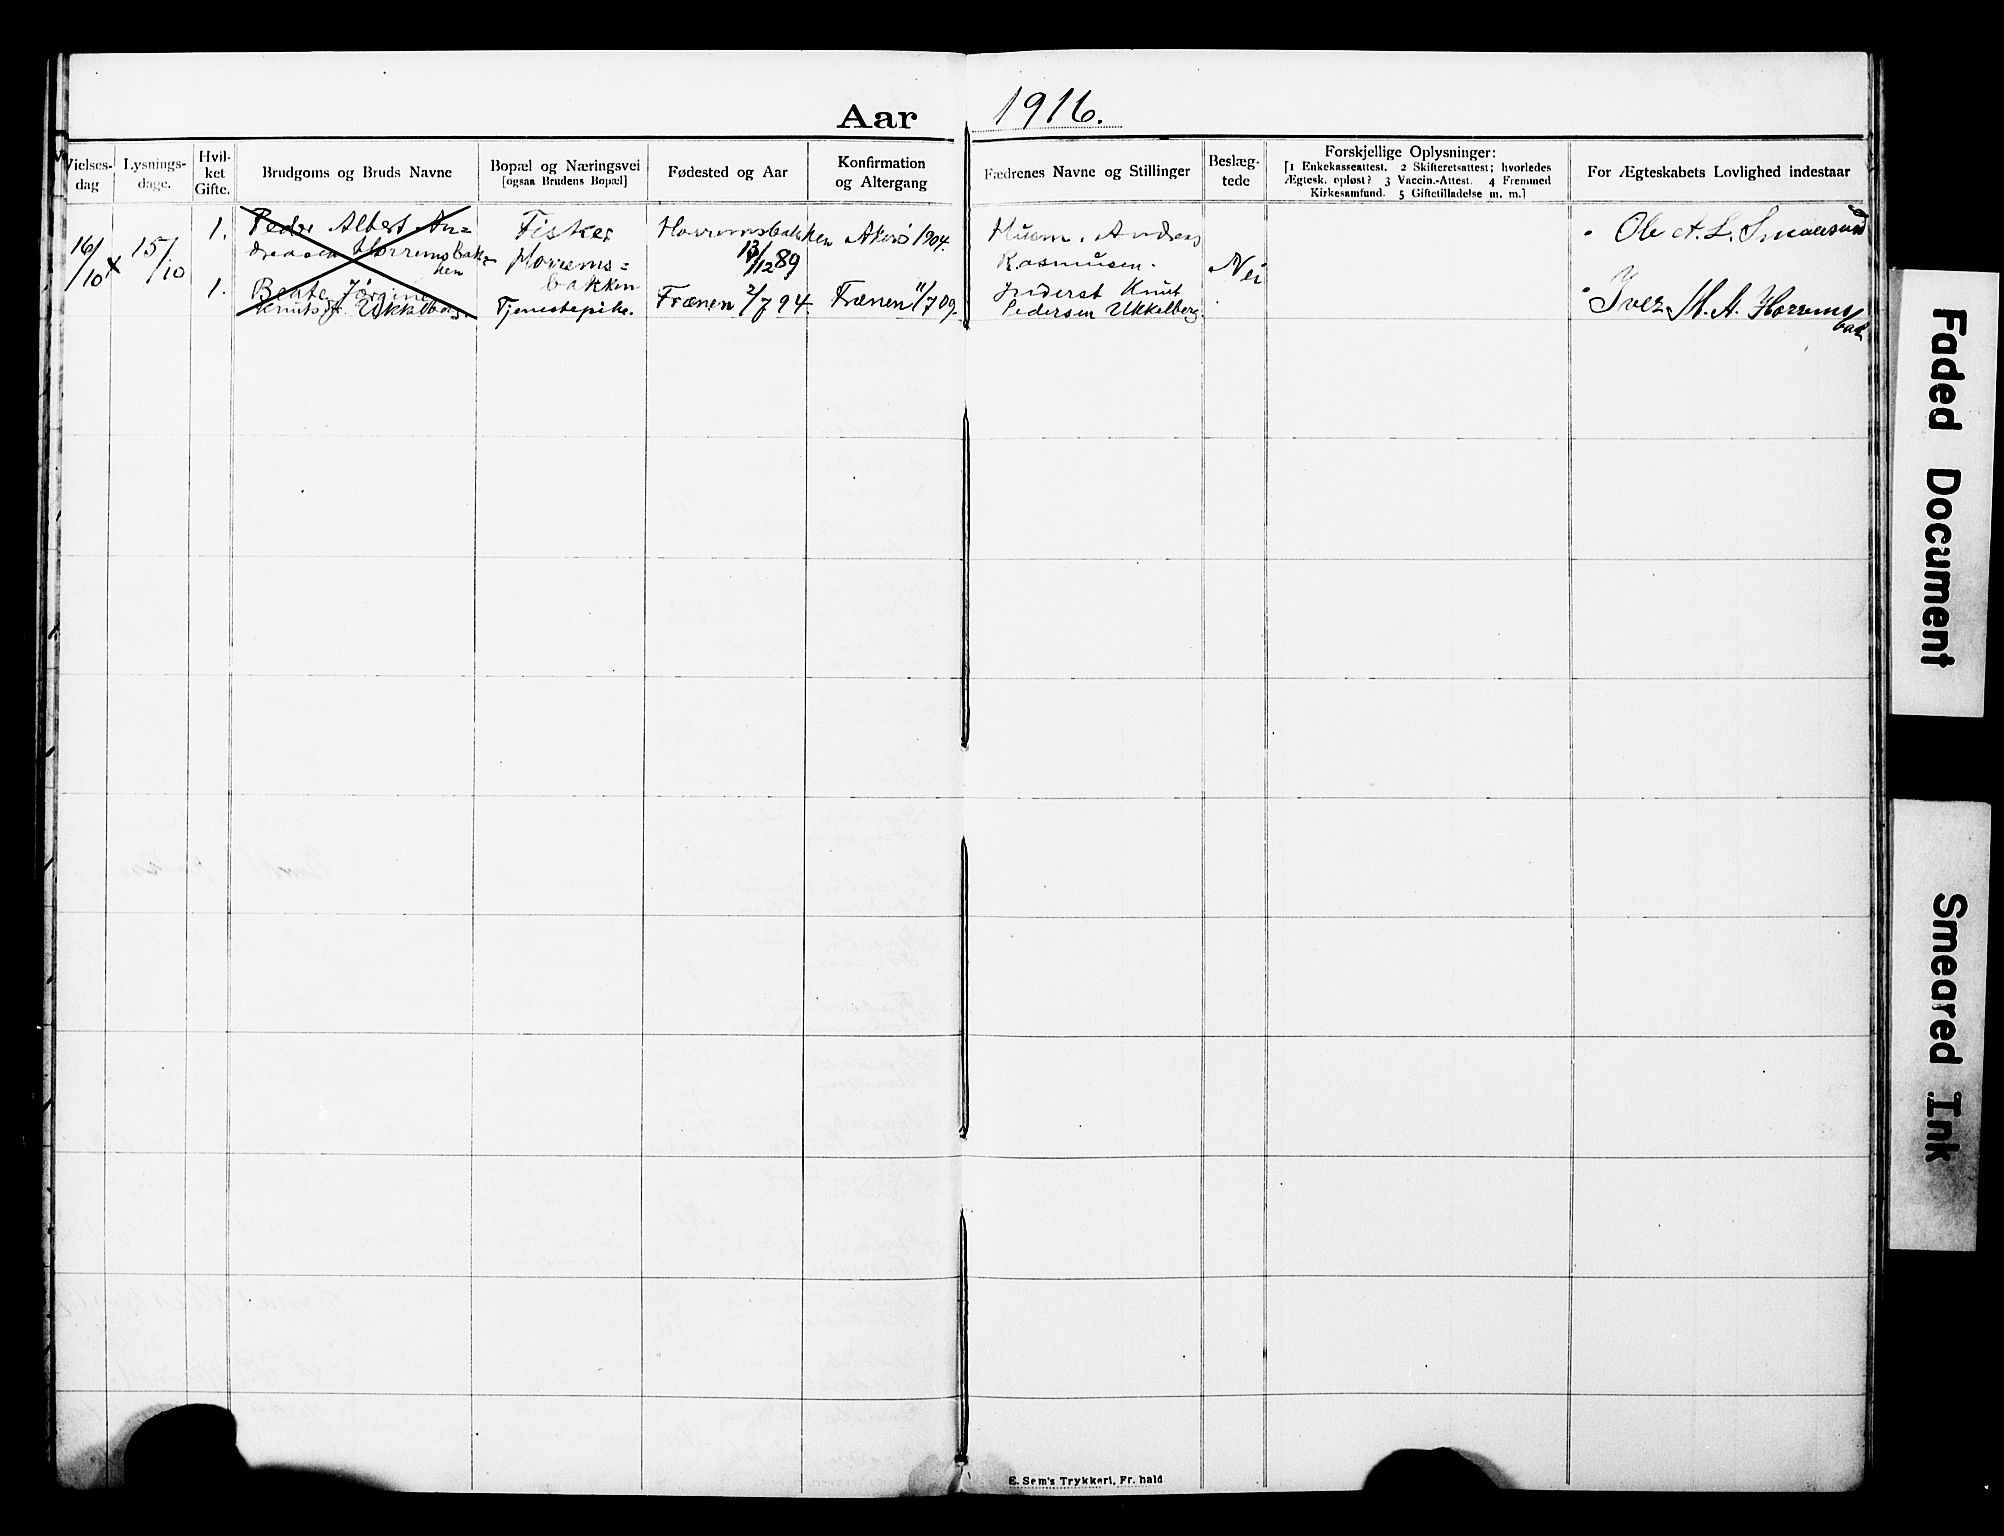 Aar 1916.
Vielses-
dag
Lysnings-
dage.
Hvil-
ket
Gifte.
Brudgoms og Bruds Navne
Bopæl og Næringsvei
[ogsaa Brudens Bopæl]
Fødested og Aar
Konfirmation
og Altergang
Fædrenes Navne og Stillinger
Beslæg-
tede
Forskjellige Oplysninger:
[1 Enkekasseattest. 2 Skifteretsattest; hvorledes
Ægtesk. opløst? 3 Vaccin.-Attest. 4 Fremmed
Kirkesamfund. 5 Giftetilladelse m. m.]
For Ægteskabets Lovlighed indestaar
16/10
15/10
1.
Peder Albert An=
dreasen Horremsbak=
ken
Fisker
Horrems=
bakken
Horremsbakken
13/12 89
Akerö 1904.
Husm. Andreas
Rasmusen.
Nei
Ole A. L. Smaaesund
1.
Beate Jörgine
Knutsdt. Ukkelberg.
Tjenestepike.
Frænen 2/7 94.
Frænen 11/7 09.
Inderst Knut
Pedersen Ukkelberg.
Iver M. A. Horrems
bak
E. Sem's Trykkeri, Fr. hald
Faded Document
Smeared Ink